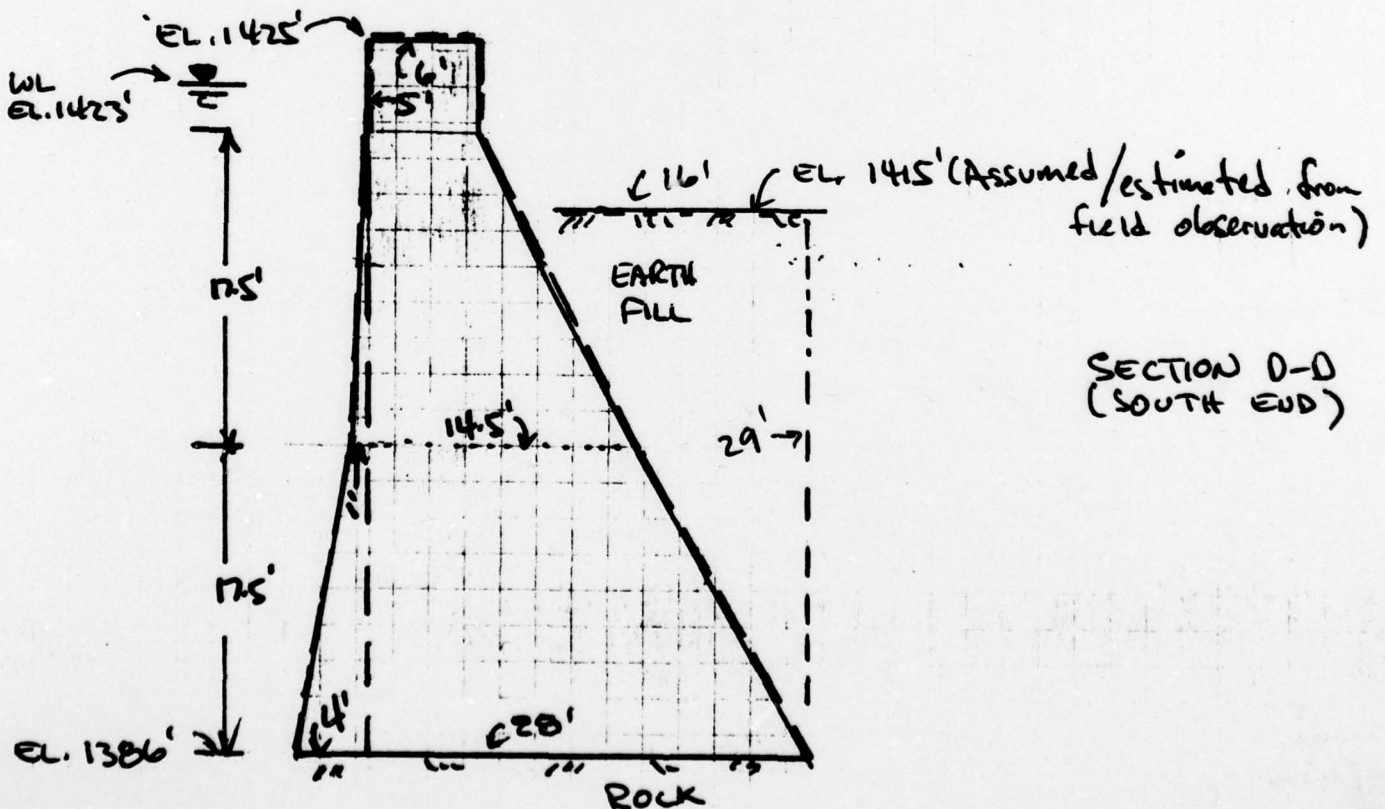 EL. 1425'
WL
EL. 1423'
6'
5'
16'
EL. 1415' (Assumed/estimated from
field observation)
EARTH
FILL
17.5'
SECTION D-D
(SOUTH END)
14.5'
29'
17.5'
4'
28'
EL. 1386'
ROCK